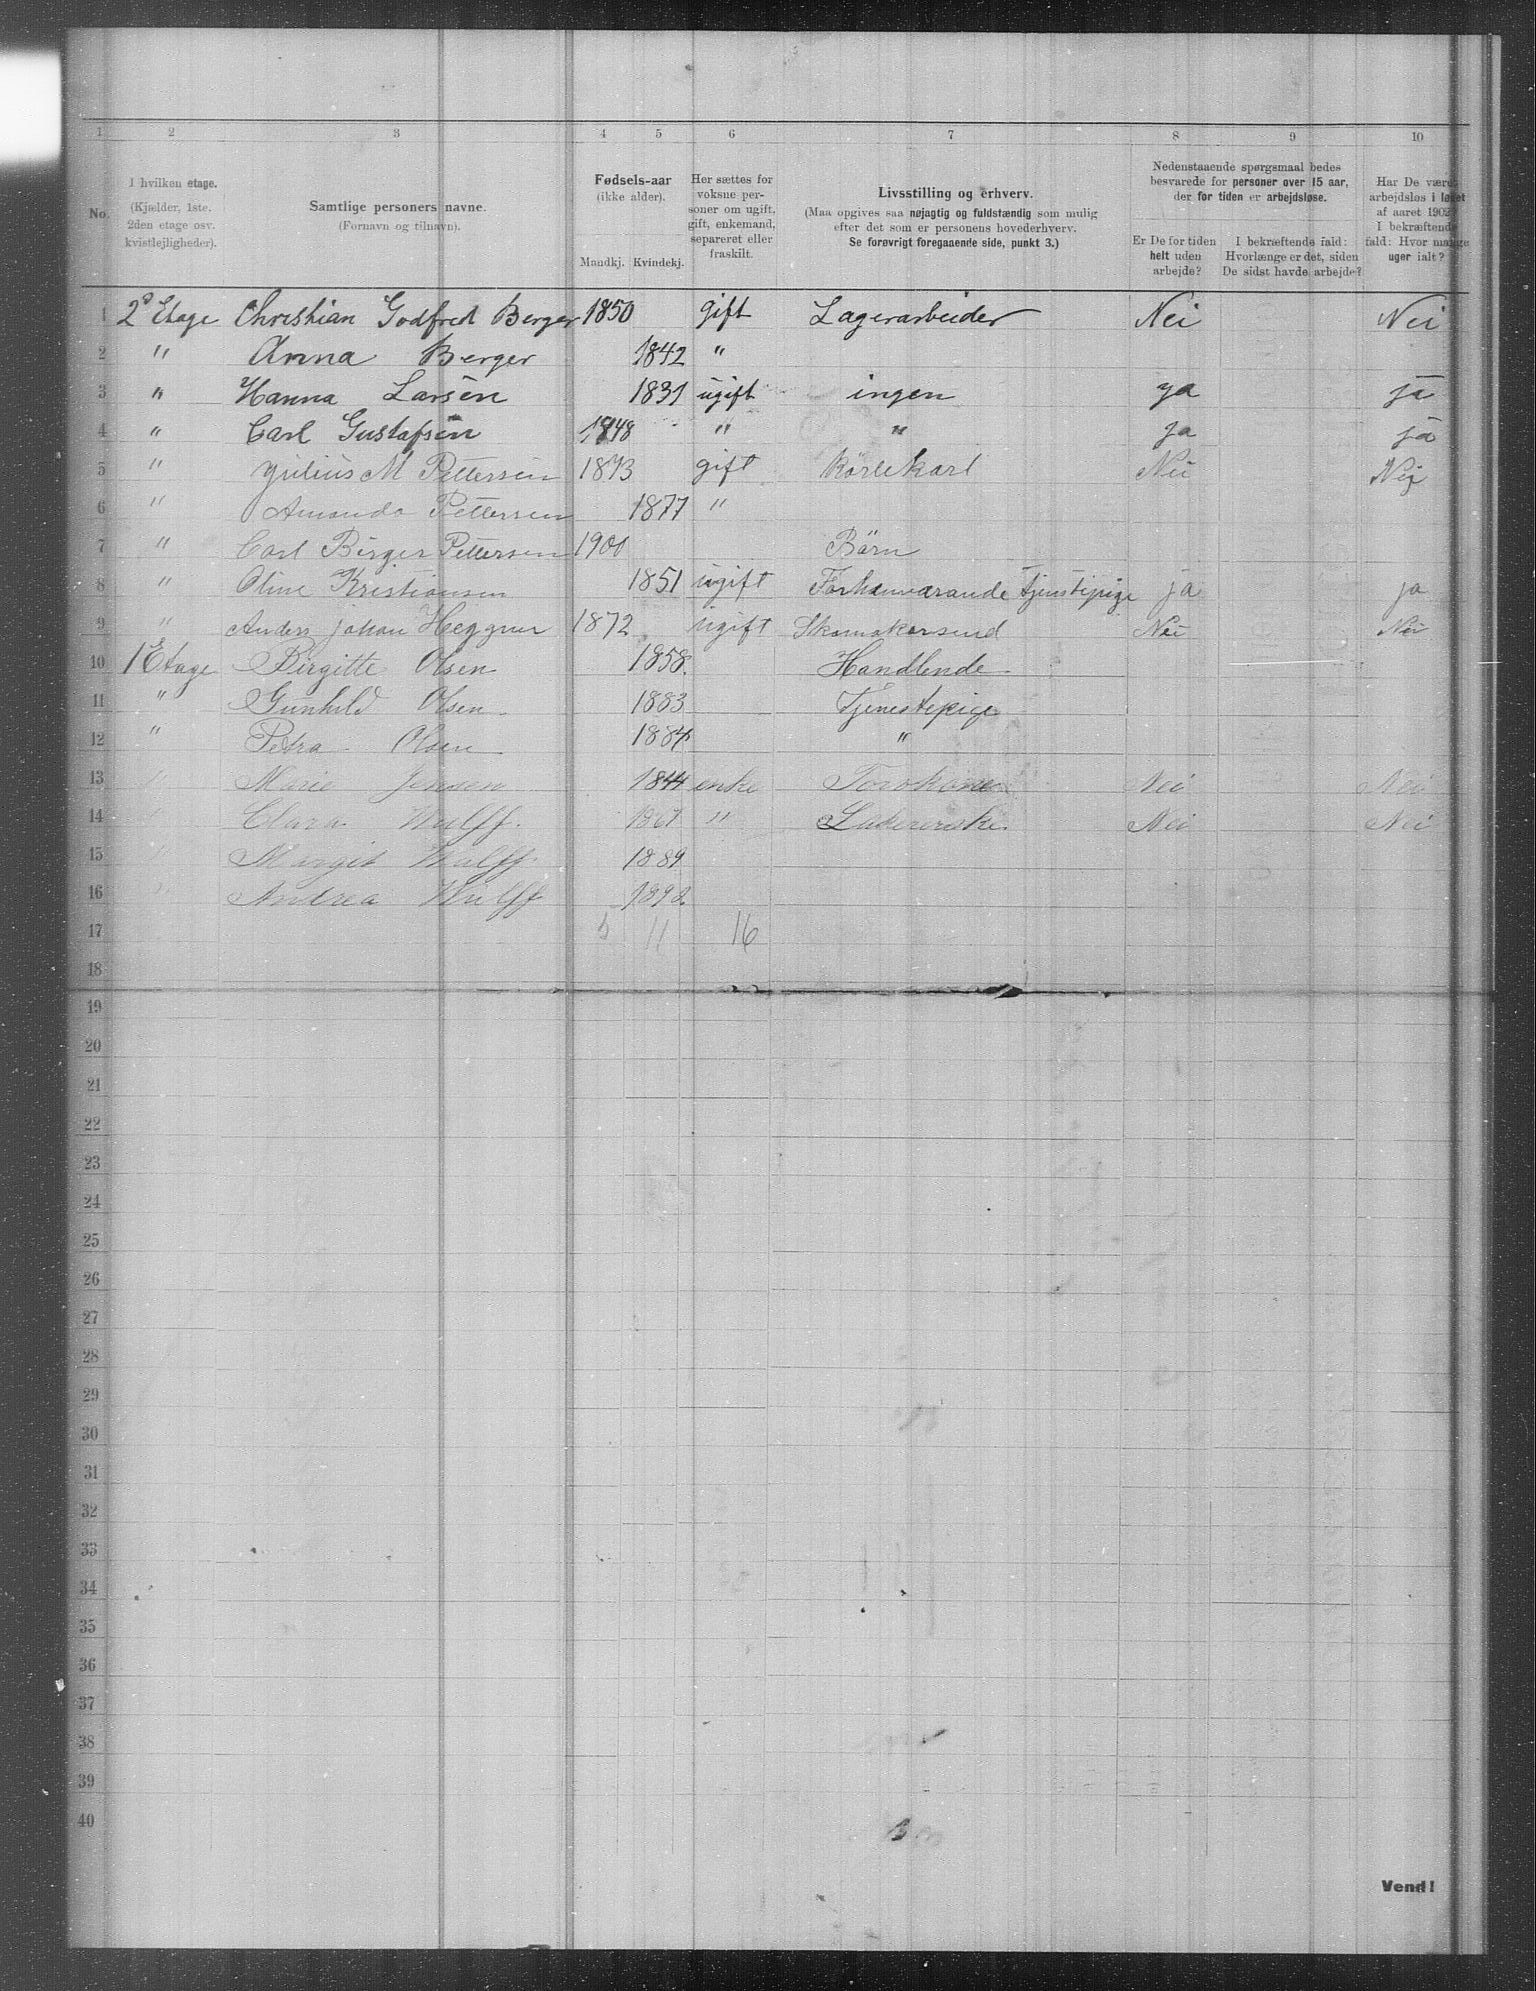 1 2 3 4 5 6 7 8 9 10
No.
I hvilken etage.
(Kjælder, 1ste.
2den etage osv.
kvistlejligheder).
Samtlige personers navne.
(Fornavn og tilnavn).
Fødsels-aar
(ikke alder).
Mandkj. Kvindekj.
Her sættes for
voksne per-
soner om ugift,
gift, enkemand,
separeret eller
fraskilt.
Livsstilling og erhverv.
(Maa opgives saa nøjagtig og fuldstændig som mulig
efter det som er personens hovederhverv.
Se forøvrigt foregaaende side, punkt 3.)
Nedenstaaende spørgsmaal bedes
besvarede for personer over 15 aar,
der for tiden er arbejdsløse.
Er De for tiden
helt uden
arbejde?
I bekræftende fald:
Hvorlænge er det, siden
De sidst havde arbejde?
Har De været
arbejdsløs i løbet
af aaret 1902?
I bekræftende
fald: Hvor mange
uger ialt?
1 2° Etage Christian Godfred Berger 1850 gift Lagerarbeider Nei Nei
2 " Anna Berger 1842 "
3 " Hanna Larsen 1831 ugift ingen ya ja
4 " Carl Gustafsen 1848 " " ja ja
5 " Julius M Pettersen 1873 gift Körlekarl Nei Nej
6 " Amanda Pettersen 1877 "
7 " Carl Birger Pettersen 1900 Börn
8 " Oline Kristiansen 1851 ugift Forhenvärande tjenstepige ja ja
9 " Anders johan Heggner 1872 ugift Skomakersvend Nei Nei
10 1 Etage Birgitte Olsen 1858. Handlende
11 " Gunhild Olsen 1883 Tjenestepige
12 " Petra Olsen 1884 "
13 " Marie Jensen 1844 enke Torvkone Nei Nei
14 " Clara Wulff 1867 " Laderenske Nei Nei
15 " Margit Wulff 1889
16 " Andrea Wulff 1892
17 5 11 16
18
19
20
21
22
23
24
25
26
27
28
29
30
31
32
33
34
35
36
37
38
39
40
Vend!